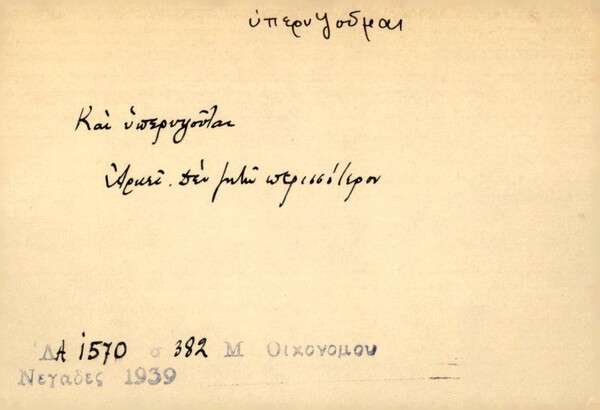 ὑπερυψοῦμαι
Καὶ ὑπερυψοῦται
Ἀρκεῖ. Δὲν ζητῶ περισσότερον
ΛΑ 1570 σ 382 Μ Οικονομου
Νεγαδες 1939